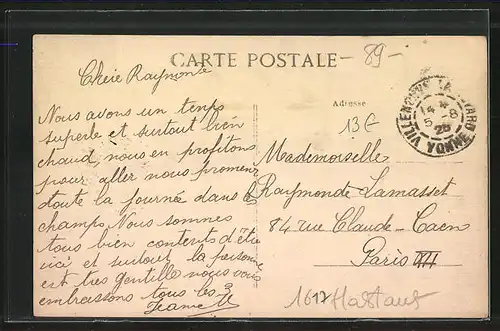 CARTE POSTALE
-89-
Chère Raymonde
Adresse
13E
Nous avons un temps
superbe et surtout bien
chaud, nous en profitons
pour aller nous promener
toute la journée dans les
champs. Nous sommes
tous bien contents d'être
ici et surtout la
est très gentille nous vous
embrassons tous les 3
Jeanne
Mademoiselle
Raymonde Lamasset
84 rue Claude-Caen
Paris
VILLENEUVE YONNE
14
5 -8
26
1617